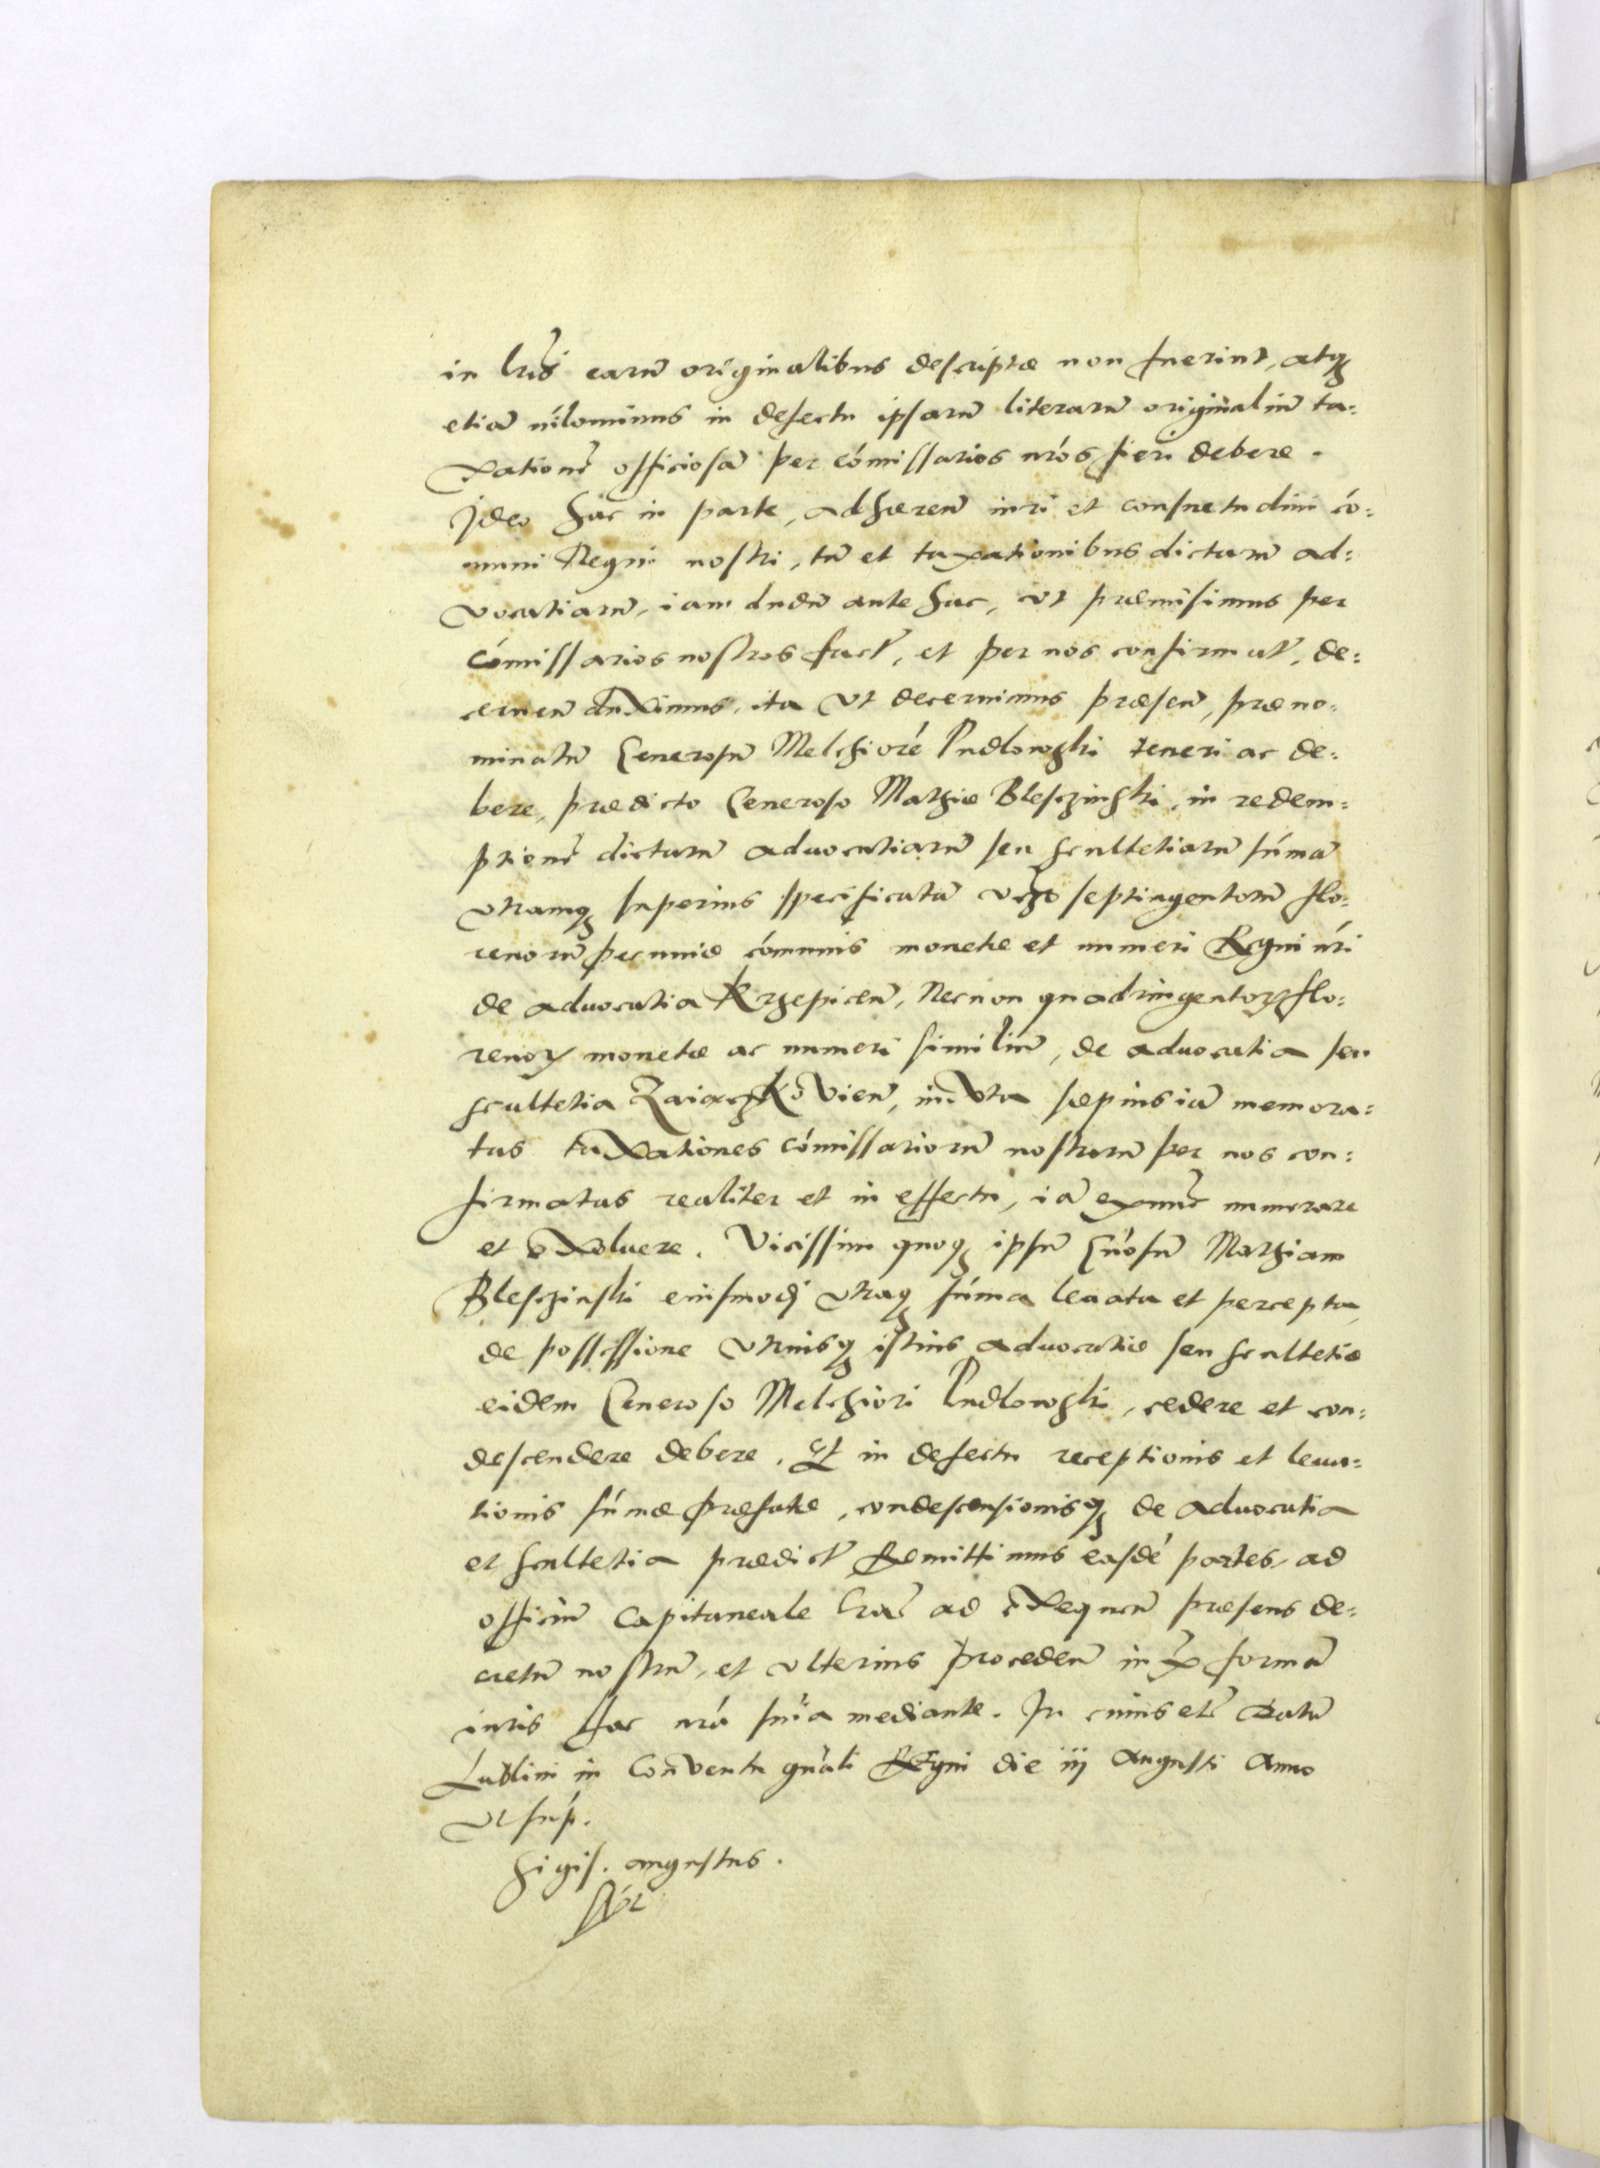 in lrīs earū originalibus descriptæ non fuerint, atq₃
etiā nilominus in defectu ipsarū literarū originaliū ta=
xationē officiosā per cōmissarios nrōs fieri debere.
Ideo hac in parte, adhæreñ iuri et consuetudini cō=
muni Regni nostri, tū et taxationibus dictarū ad=
vocatiarū, iam dudū ante hac, vt præmisimus per
cōmissarios nostros fact̄, et per nos confirmat̄, de=
cerneñ duximus, ita vt decernimus præseñ, præno=
minatū Generosū Melchiorē Pudlowski teneri ac de=
bere, prædicto Generoso Mathiæ Blesczinski, in redem=
ptionē dictarū aduocatiarū seu scultetiarū sūmā
vtramq₃ superius specificatā vcz septingentorū flo=
renorū pecuniæ cōmunis monetæ et numeri Regni nrī
de aduocatia Krzepiceñ, Necnon quadringentoꝝ flo=
renoꝝ monetæ ac numeri similiū, de aduocatia seu
scultetia Zaiaczkowieñ, iuxta sæpius iā memora=
tas taxationes cōmissariorū nostrorū per nos con=
firmatas realiter et in effectu, iā exnunc numerare
et exoluere. Vicissim quoq₃ ipsū Gnōsū Mathiam
Blesczinski eiusmodi vtraq₃ sūma leuata et percepta,
de possessione vtriusq₃ istius aduocatiæ seu scultetiæ
eidem Generoso Melchiori Pudlowski, cedere et con=
descendere debere. Et in defectu receptionis et leua=
tionis sūmæ præfatæ, condescensionisq₃ de aduocatia
et scultetia prædict̄ Remittimus easdē partes, ad
officiū Capitaneale ad exequeñ præsens de=
cretū nostrū, et vlterius procedeñ in formā
iuris hac nrā snīa mediante. In cuius etc̄ Datū
Lublini in Conventu gnāli Regni die iij Augusti Anno
vt sup̄.
Sigis. augustus.